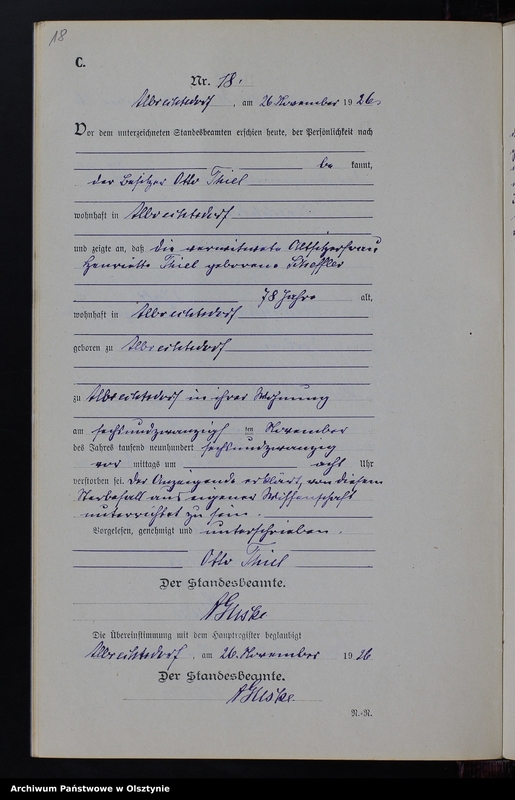 18
C.
Nr. 18.
Albrechtsdorf, am 26. November 1926.
Vor dem unterzeichneten Standesbeamten erschien heute, der Persönlichkeit nach
be kannt,
der Besitzer Otto Thiel
wohnhaft in Albrechtsdorf
und zeigte an, daß die verwitwete Altsitzerfrau
Henriette Thiel geborene Scheffler
78 Jahre alt,
wohnhaft in Albrechtsdorf
geboren zu Albrechtsdorf
zu Albrechtsdorf in ihrer Wohnung
am sechsundzwanzigsten November
des Jahres tausend neunhundert sechsundzwanzig
vor mittags um acht Uhr
verstorben sei. Der Anzeigende erklärt, von diesem
Sterbefall aus eigener Wissenschaft
unterrichtet zu sein.
Vorgelesen, genehmigt und unterschrieben.
Otto Thiel
Der Standesbeamte.
Die Übereinstimmung mit dem Hauptregister beglaubigt
Albrechtsdorf, am 26. November 1926
Der Standesbeamte.
N.-R.
Archiwum Państwowe w Olsztynie